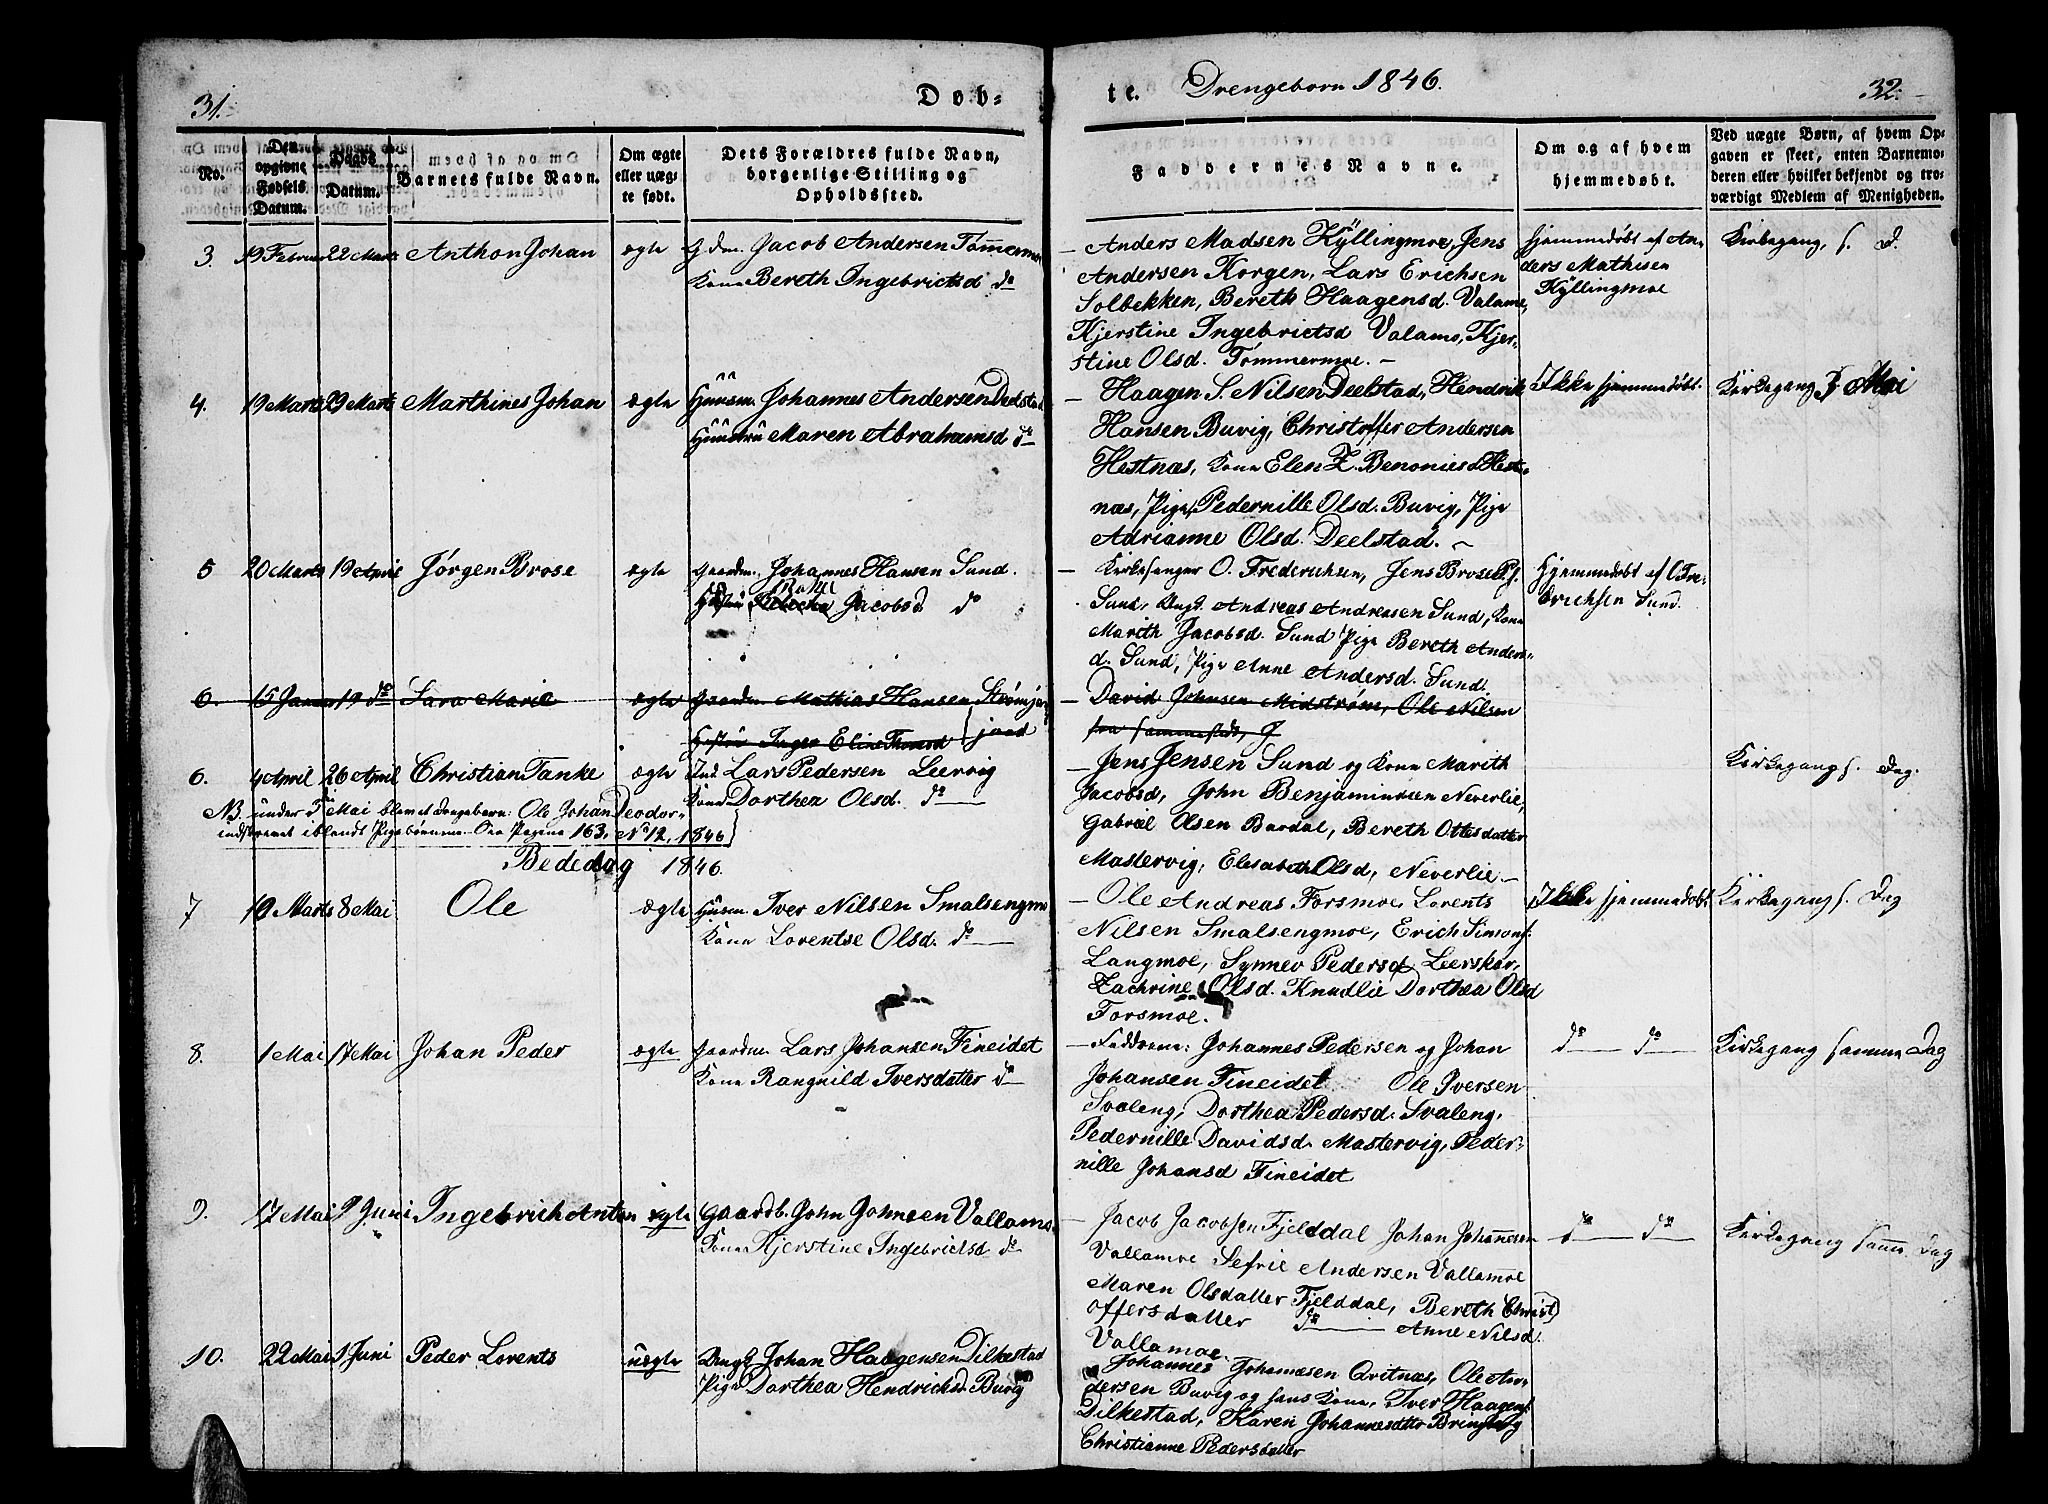 31.
Døb-
te.
Drengebørn 1846.
32.
No.
Den opgivne Fødsels Datum.
Daabs Datum.
Barnets fulde Navn.
Om ægte eller uægte født.
Dets Forældres fulde Navn, borgerlige Stilling og Opholdssted.
Faddernes Navne.
Om og af hvem hjemmedøbt.
Ved uægte Børn, af hvem Opgaven er skeet, enten Barnemoderen eller hvilket bekjendt og troværdigt Medlem af Menigheden.
3. 19 Februar 22 Marts Anthon Johan ægte Gdm. Jacob Andersen Tømmermoe
Kone Bereth Ingebrictsd do
– Anders Madsen Kyllingmoe, Jens
Andersen Korgen, Lars Erichsen
Solbekken, Bereth Haagensd. Valamo,
Kjerstine Ingebrictsd Valamo, Kjer-
stine Olsd. Tømmermoe. –
Hjemmedøbt af An-
ders Mathisen
Kyllingmoe
Kirkegang, s. D.
4. 19 Marts 29 Marts Marthines Johan ægte Huusm. Johannes Andersen Deelstad
Huustru Maren Abrahamsd do
– Haagen S. Nilsen Deelstad, Hendrik
Hansen Buvig, Christoffer Andersen
Hestnæs, Kone Elen Z. Benoniesd Hest-
næs, Pige Pedernille Olsd. Buvig, Pige
Adrianne Olsd. Deelstad. –
Ikke hjemmedøbt.
Kirkegang 3 Mai
5 20 Marts 19 April Jørgen Brose ægte Gaardm. Johannes Hansen Sund.
Jacobsd do
– Kirkesanger O. Frederichsen, Jens Brose P.s.
Sund, Ungk. Andreas Andreasen Sund, Kone
Marith Jacobsd. Sund Pige Bereth Anders-
d. Sund, Pige Anne Andersd. Sund.
Hjemmedøbt af O Fre-
derichsen Sund.
6. 15 Januar 19 do Sara Marie ægte Gaardm. Mathias Hansen Strømjorj
Hustru Inger Eline Thomsd jord
– David Johnsen Midstrøm, Ole Nilsen
fra sammested,
6. 4 April 26 April Christian Tanke ægte Ind. Lars Pedersen Leervig
Kone Dorthea Olsd. do
– Jens Jensen Sund og Kone Marith
Jacobsd, John Benjaminsen Neverlie,
Gabriel Olsen Bardal, Bereth Ottesdatter
Mastervig, Elisabeth Olsd, Neverlie –
Kirkegang s. Dag.
NB. under Mai blev et Drengebarn Ole Johan Deodor
indskrevet iblandt Pigebørnene See Pagina 163, No 12, 1846
Bededag 1846.
7 10 Marts 8 Mai Ole ægte Huusm. Iver Nilsen Smalsengmo
Kone Lorentse Olsd. do
– Ole Andreas Forsmoe, Lorents
Nilsen Smalsengmoe, Erich Simons.
Langmoe, Synnev Pedersd Leerskar,
Zachrine Olsd. Knudlie Dorthea Olsd
Forsmoe.
Ikke hjemmedøbt
Kirkegang s. Dag
8. 1 Mai 17 Mai Johan Peder ægte Gaardm. Lars Johansen Fineidet
Kone Rangnild Iversdatter do
– Faddrene: Johannes Pedersen og Johan
Johansen Fineidet Ole Iversen
Svaleng, Dorthea Pedersd. Svaleng,
Pedernille Davidsd. Mastervig, Peder-
nille Johansd Fineidet
do do
Kirkegang samme Dag
9. 17 Mai 1 Juni Ingebrich Anton ægte Gaardb. John Johnsen Vallamo.
Kone Kjerstine Ingebrictsd do
– Jacob Jacobsen Fjelddal Johan Johannesen
Vallamoe Sefrie Andersen Vallamoe
Maren Olsdatter Fjelddal, Bereth Christ
offersdatter do Anne Nilsd.
Vallamoe
do do
Kirkegang samme Dag
10. 22 Mai 1 Juni Peder Lorents uægte Ungk. Johan Haagensen Dilkestad
Pige Dorthea Hendricksd Buvg
Johannes Johannesen Qvitnæs, Ole An-
dersen Buvig og hans Kone, Iver Haagens.
Dilkestad, Karen Johannesdatter
Christianne Pedersdatter